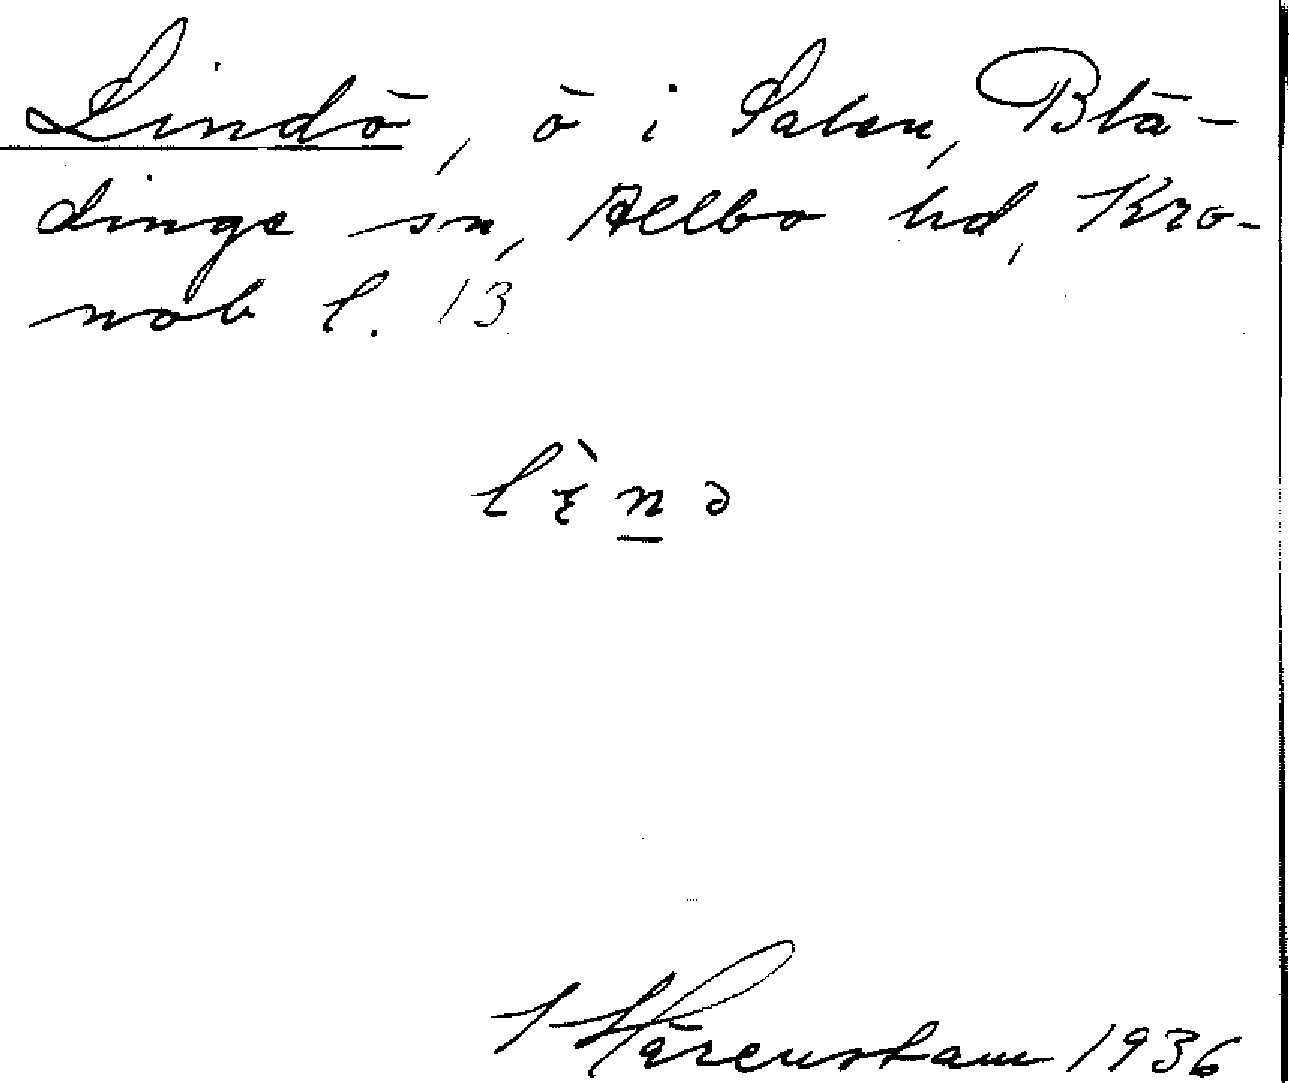 Lindö, ö i Salen, Blä-
dinge sn, Allbo hd, Kro-
nob l. 13
lɪ̀n̲ə
Härenstam 1936